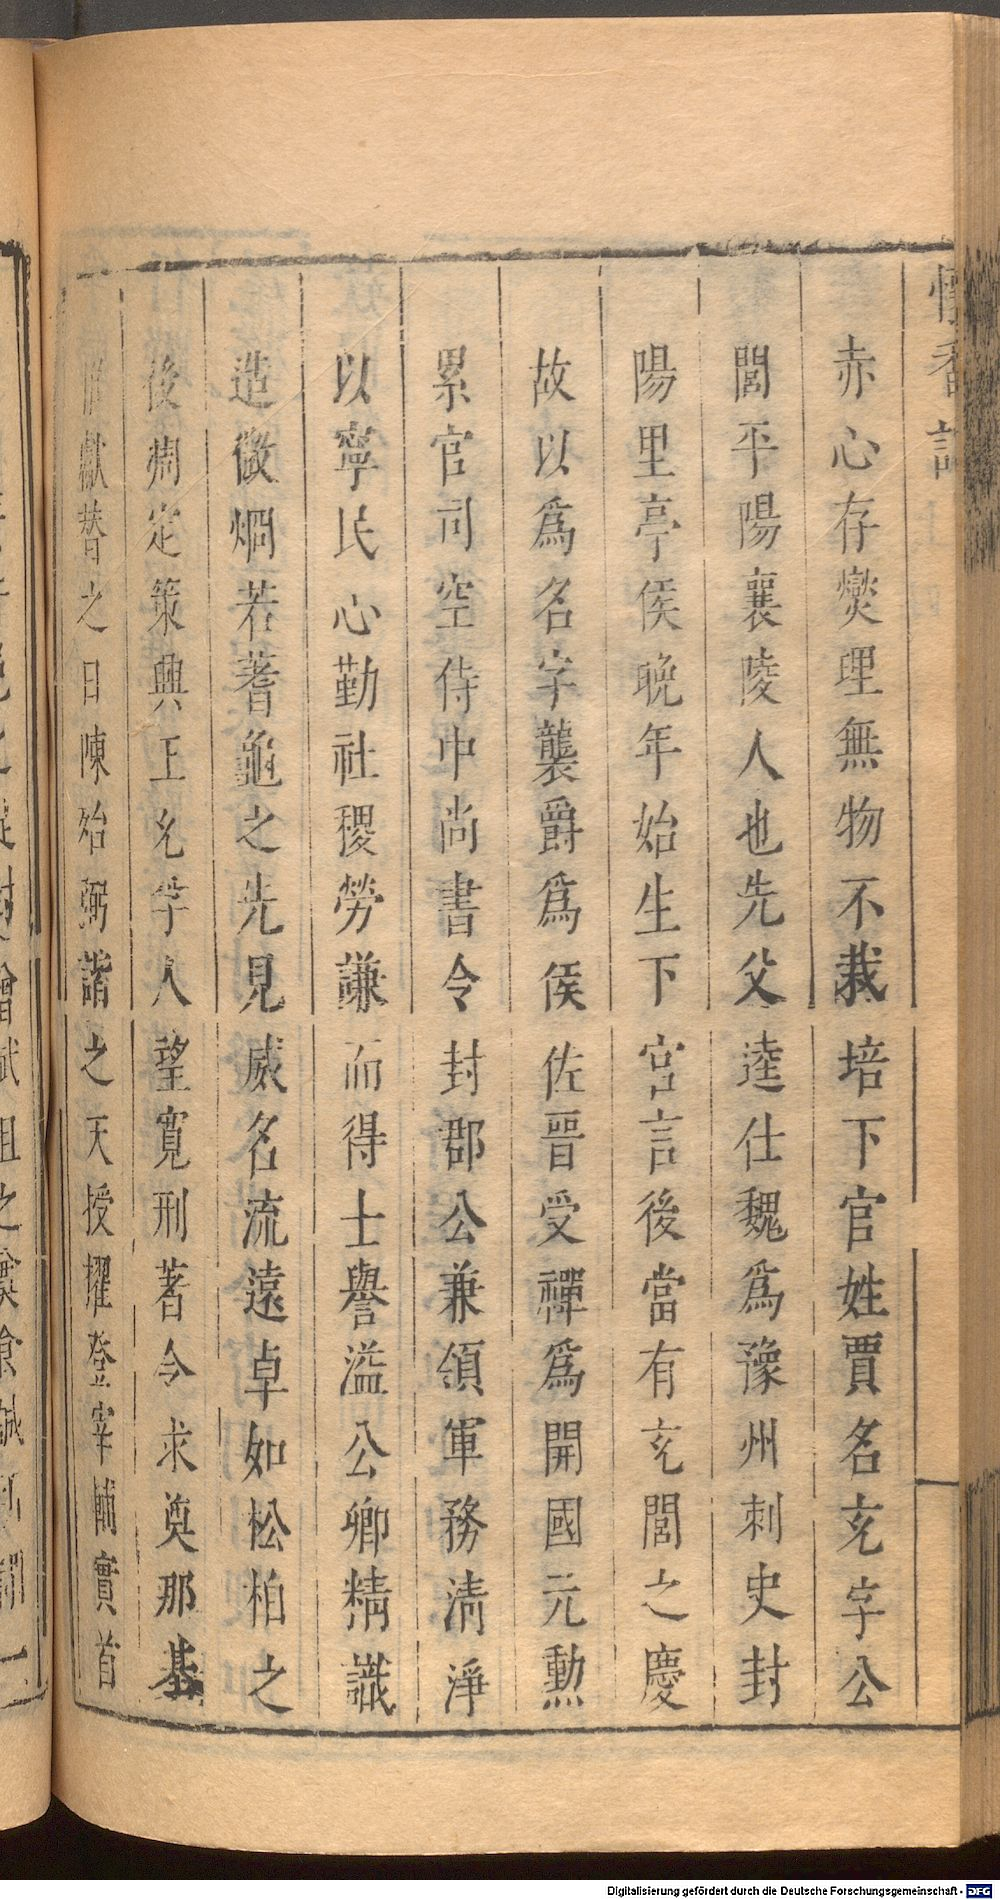 懷香記
赤心存爕理無物不栽培下官姓賈名充字公
閭平陽襄陵人也先父逵仕魏爲豫州刺史封
陽里亭侯晚年始生下官言後當有充閭之慶
故以爲名字襲爵爲侯佐晉受禪爲開國元勲
累官司空侍中尚書令封郡公兼領軍務清淨
以寧民心勤社稷勞謙而得士譽溢公卿精識
造微烱若蓍龜之先見威名流遠卓如松柏之
後凋定策興王允孚人望寬刑著令求奠邦基
獻替之日陳殆弼諧之天授擢登宰輔實首
Digitalisierung gefördert durch die Deutsche Forschungsgemeinschaft - DFG